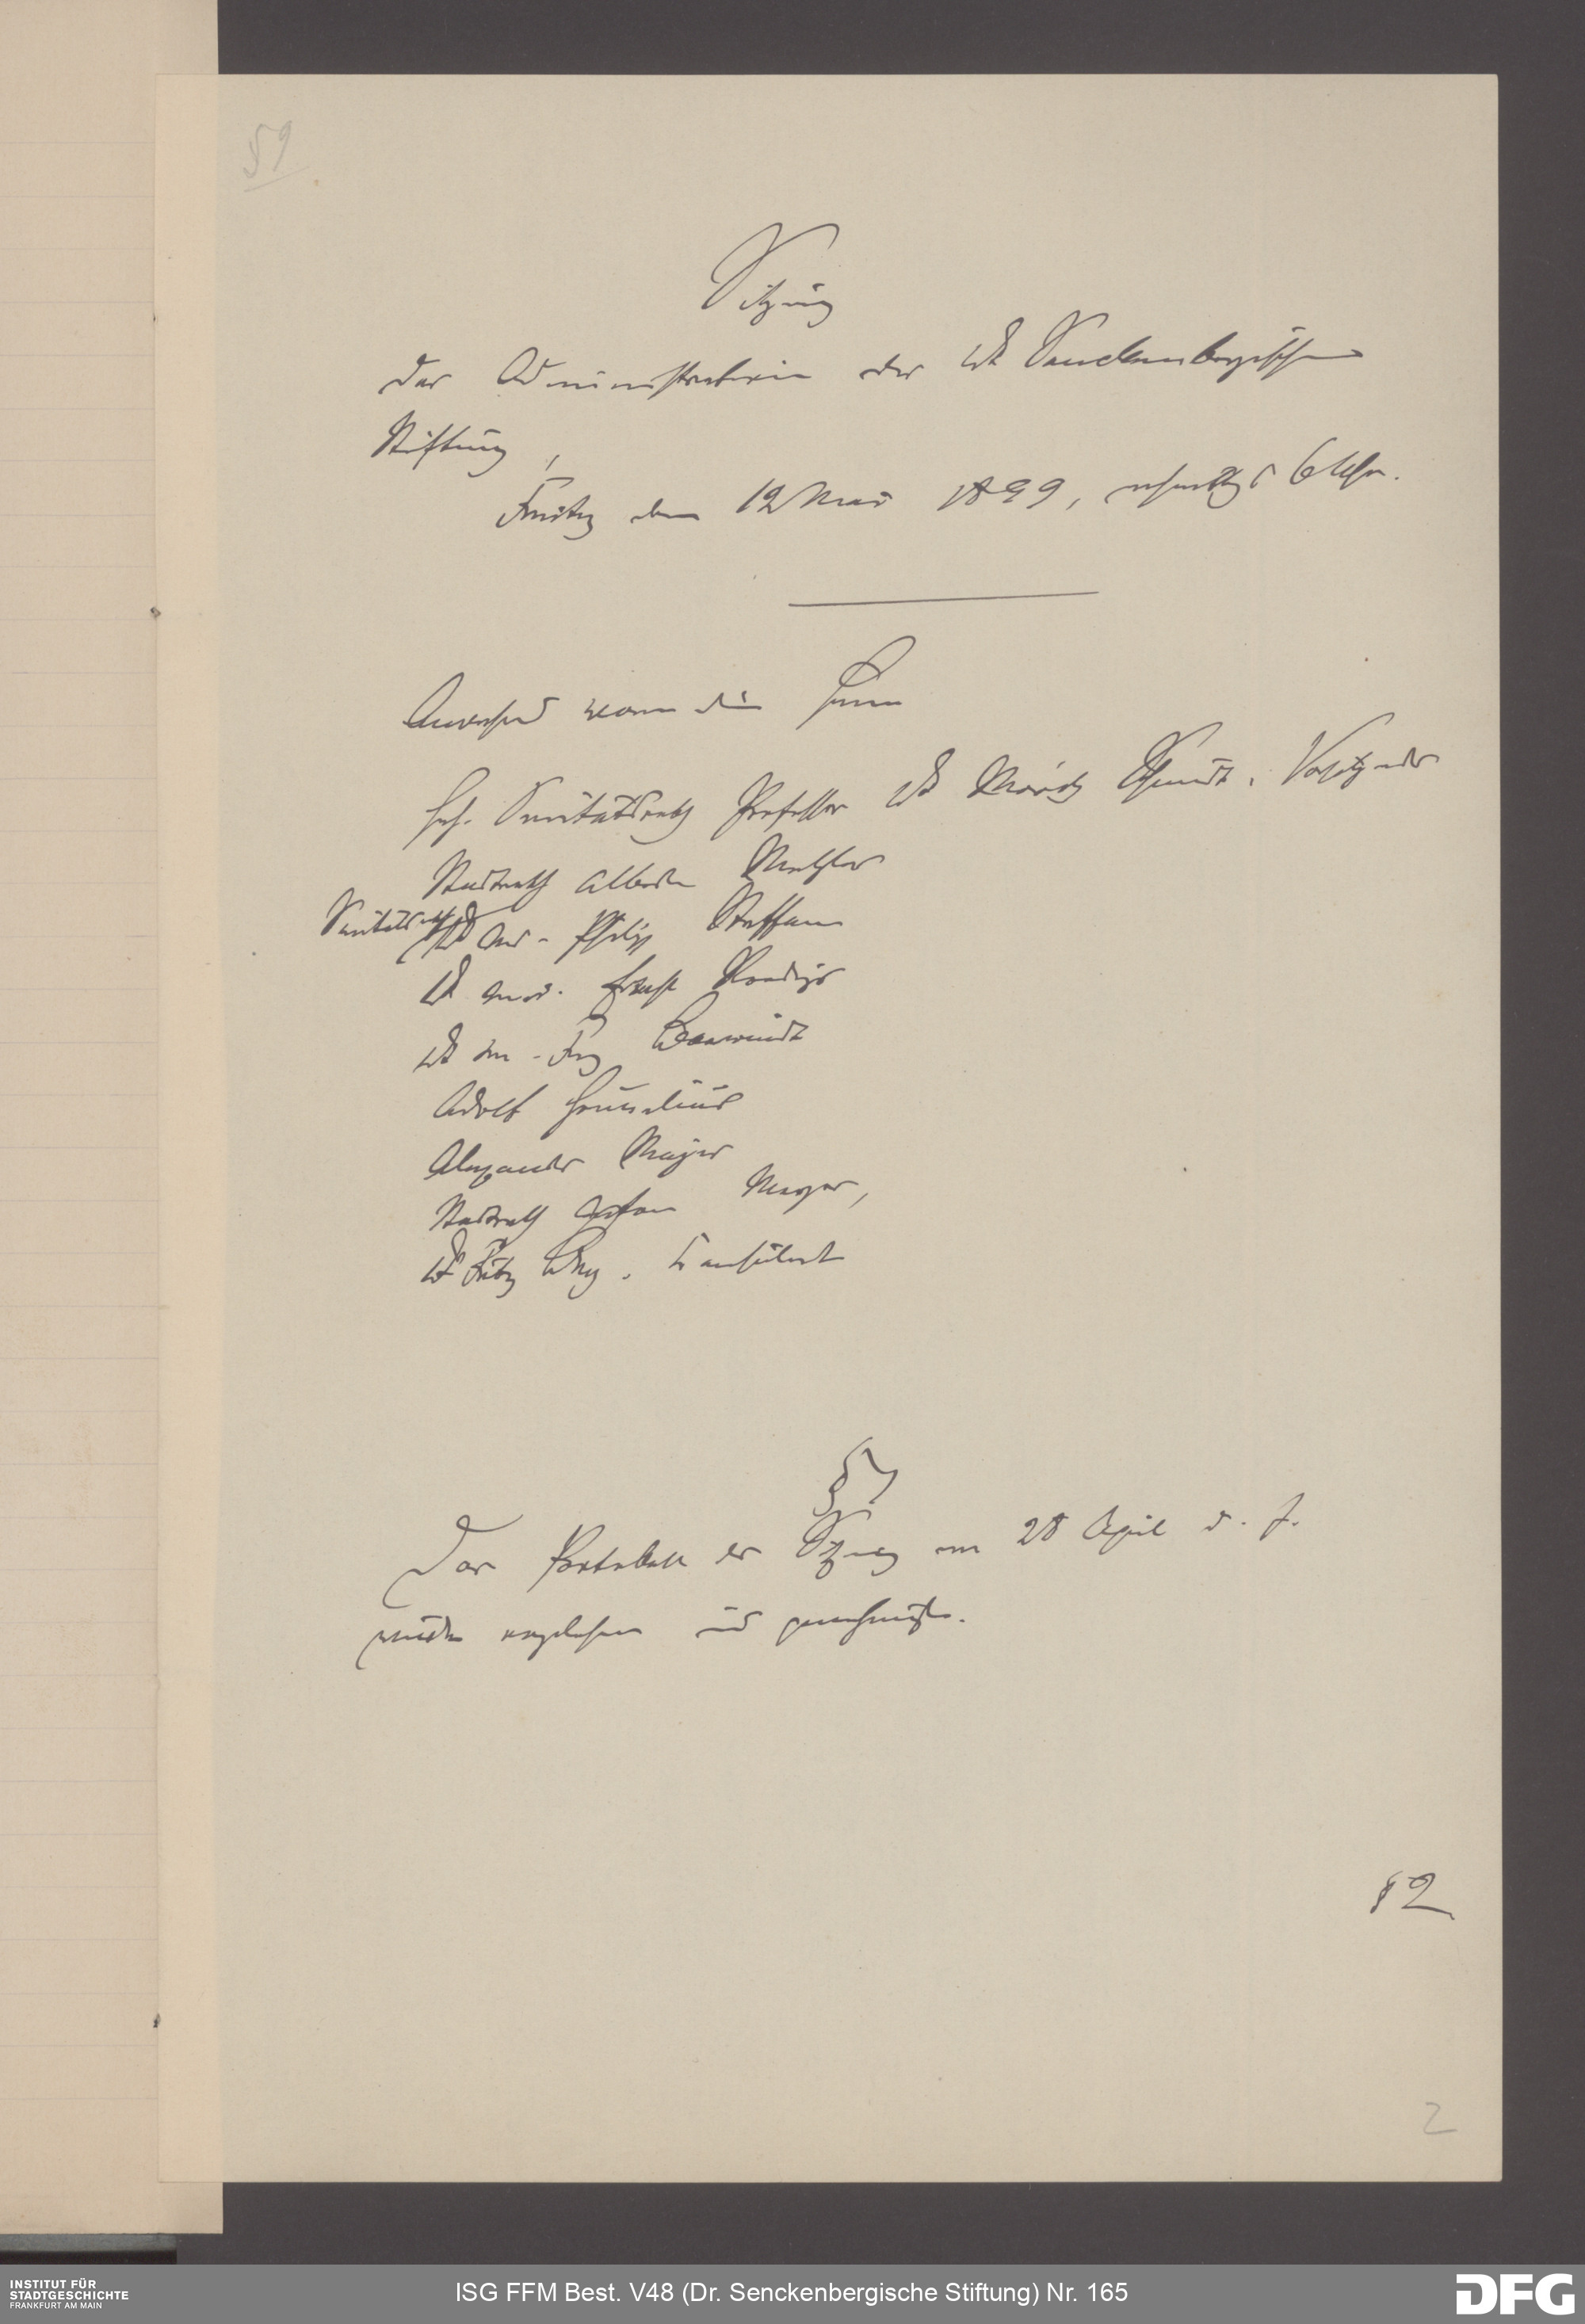 59
Sitzung
der Administration der Dr Senckenbergischen
Stiftung,
Freitag den 12 Mai 1899, nachmittags 6 Uhr.
Anwesend waren die Herren
Geh. Sanitätsrath Professor Dr Moritz Schmidt, Vorsitzender
Stadtrath Albert Metzler
Sanitätsrath Dr med. Philipp Steffan
Dr med. Ernst Roediger
Dr jur. Fritz Berg, Consulent
Adolf Grunelius
Alexander Majer
Stadtrath Gustav Meyer,
§ 1
Das Protokoll der Sitzung vom 28 April d. J.
wurde vorgelesen und genehmigt.
§ 2
2
INSTITUT FÜR
STADTGESCHICHTE
FRANKFURT AM MAIN
ISG FFM Best. V48 (Dr. Senckenbergische Stiftung) Nr. 165
DFG